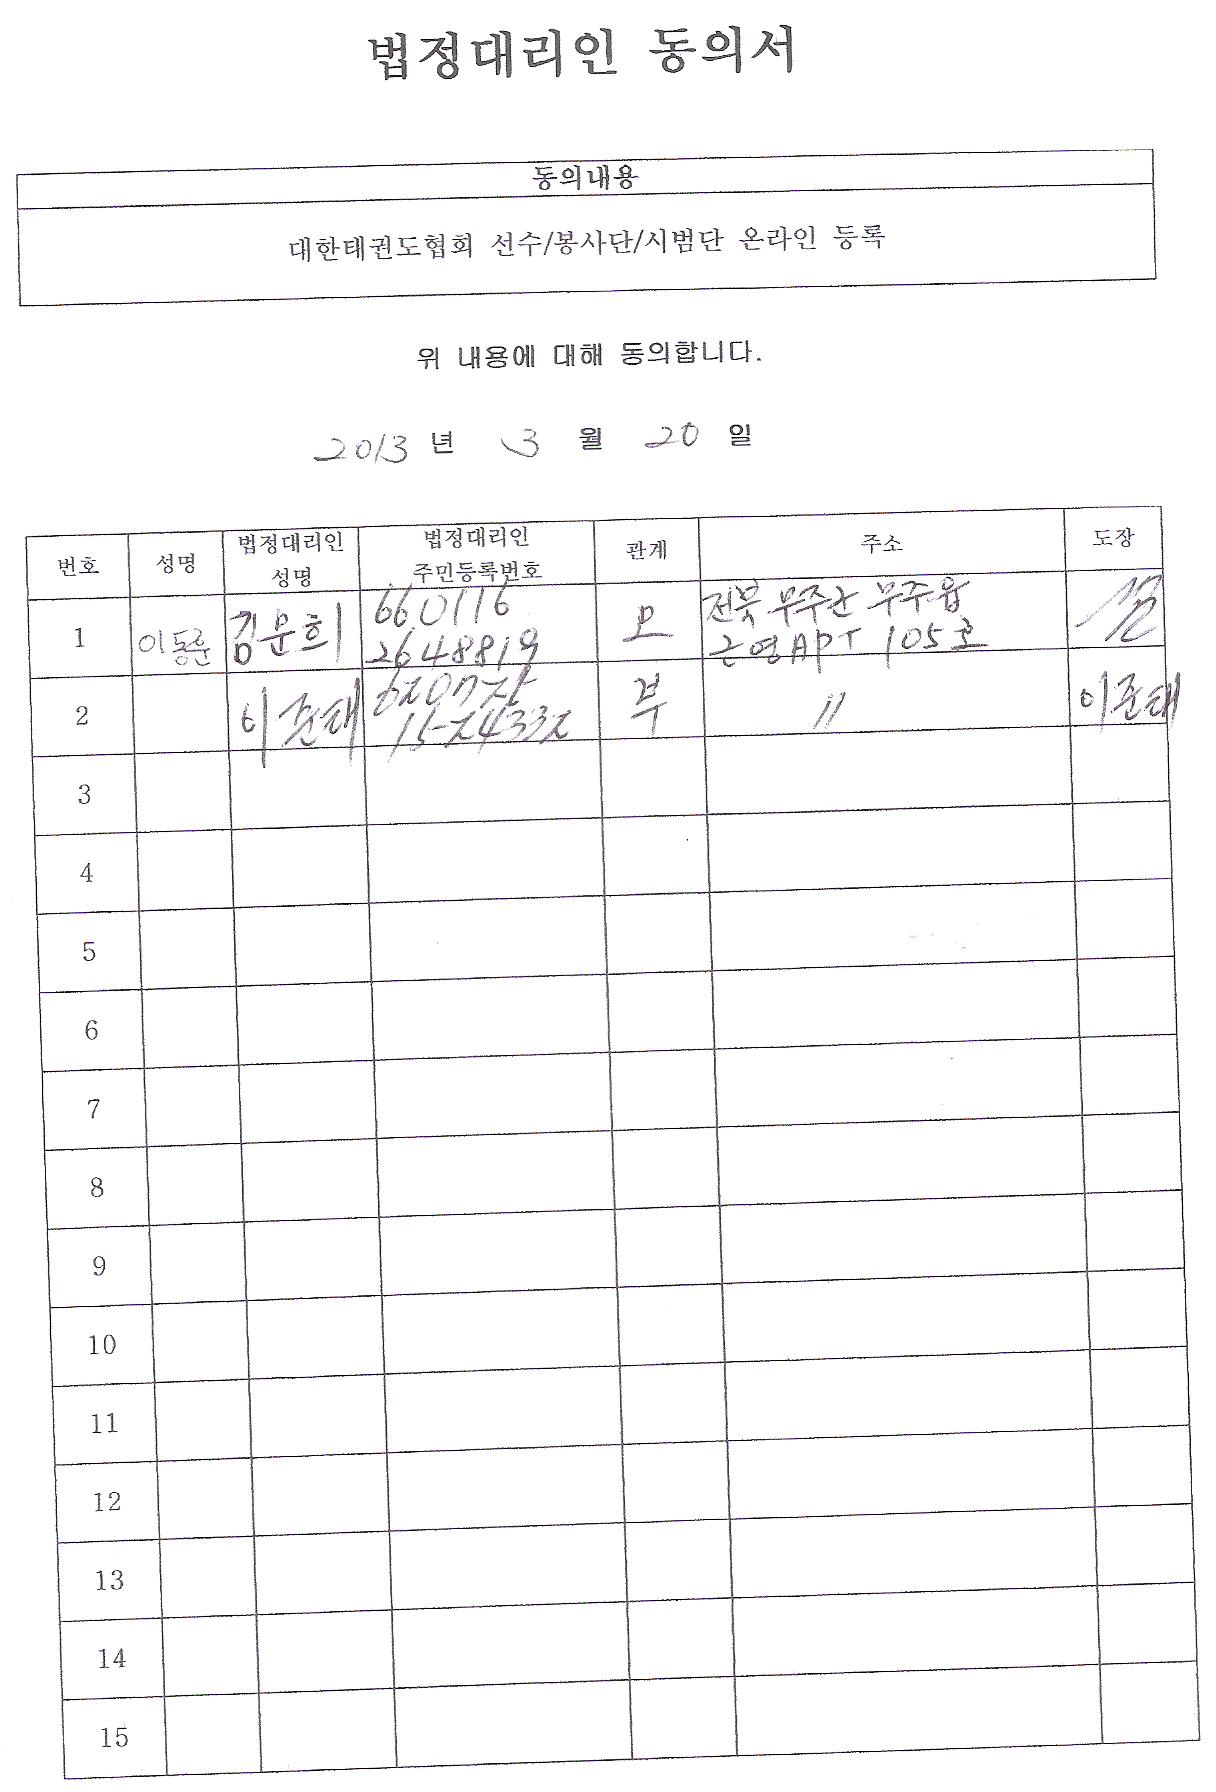 법정대리인 동의서
동의내용
대한태권도협회 선수/봉사단/시범단 온라인 등록
위 내용에 대해 동의합니다.
2013 년 3 월 20 일
번호 성명 법정대리인 성명 법정대리인 주민등록번호 관계 주소 도장
1 이동훈 김운희 660116 2648819 모 전북 무주군 무주읍 근영APT 105호
2 이준태 부 〃 이준태
3
4
5
6
7
8
9
10
11
12
13
14
15